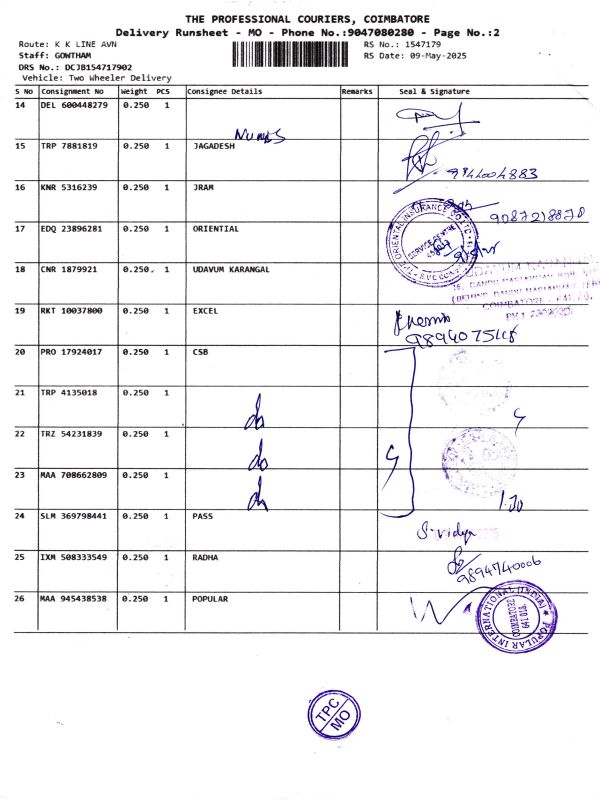 THE PROFESSIONAL COURIERS, COIMBATORE
Delivery Runsheet - MO - Phone No.:9047080280 - Page No.:2
Route: K K LINE AVN
RS No.: 1547179
Staff: GOWTHAM
RS Date: 09-May-2025
DRS No.: DCJB154717902
Vehicle: Two Wheeler Delivery
S No Consignment No Weight PCS Consignee Details Remarks Seal & Signature
14 DEL 600448279 0.250 1
15 TRP 7881819 0.250 1 JAGADESH
16 KNR 5316239 0.250 1 JRAM
9087218878
17 EDQ 23896281 0.250 1 ORIENTIAL
THE ORIENTAL INSURANCE CO. LTD.
SERVICE CENTRE
18 CNR 1879921 0.250 1 UDAVUM KARANGAL
COIMBATORE
19 RKT 10037800 0.250 1 EXCEL
20 PRO 17924017 0.250 1 CSB
21 TRP 4135018 0.250 1
do
22 TRZ 54231839 0.250 1
do
23 MAA 708662809 0.250 1
do
4
1.30
24 SLM 369798441 0.250 1 PASS
S. vidya
25 IXM 508333549 0.250 1 RADHA
9894740006
26 MAA 945438538 0.250 1 POPULAR
POPULAR INTERNATIONAL (INDIA)
COIMBATORE
641 018.
TPC
MO